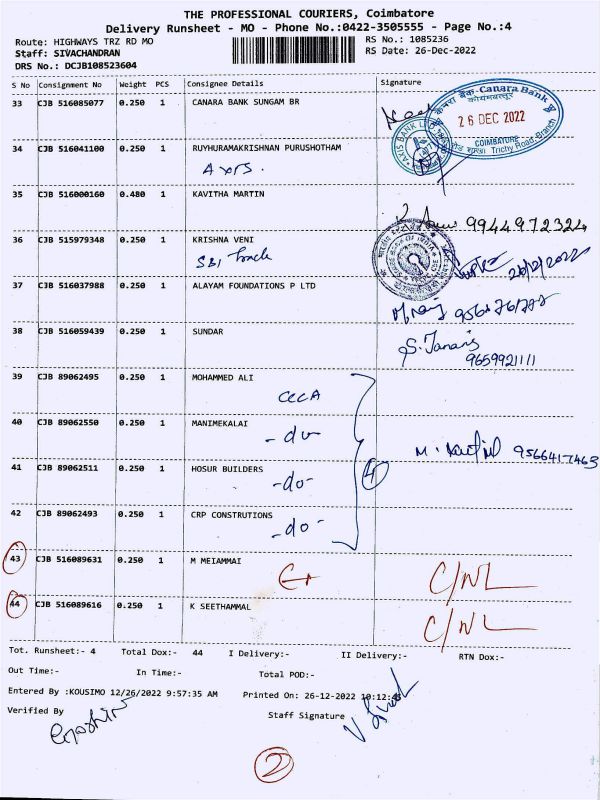 THE PROFESSIONAL COURIERS, Coimbatore
Delivery Runsheet - MO - Phone No.:0422-3505555 - Page No.:4
Route: HIGHWAYS TRZ RD MO
RS No.: 1085236
Staff: SIVACHANDRAN
RS Date: 26-Dec-2022
DRS No.: DCJB108523604
S No Consignment No Weight PCS Consignee Details Signature
33 CJB 516085077 0.250 1 CANARA BANK SUNGAM BR
केनरा बैंक-Canara Bank
26 DEC 2022
COIMBATORE
Trichy Road Branch
34 CJB 516041100 0.250 1 RUYHURAMAKRISHNAN PURUSHOTHAM
AXIS BANK
Axis.
35 CJB 516000160 0.480 1 KAVITHA MARTIN
9944972324
36 CJB 515979348 0.250 1 KRISHNA VENI
SBI
26/12/2022
37 CJB 516037988 0.250 1 ALAYAM FOUNDATIONS P LTD
38 CJB 516059439 0.250 1 SUNDAR
9659921111
39 CJB 89062495 0.250 1 MOHAMMED ALI
CCCA
40 CJB 89062550 0.250 1 MANIMEKALAI
- do -
M. 9566417463
41 CJB 89062511 0.250 1 HOSUR BUILDERS
-do-
4
42 CJB 89062493 0.250 1 CRP CONSTRUTIONS
-do-
43 CJB 516089631 0.250 1 M MEIAMMAI
C/NL
44 CJB 516089616 0.250 1 K SEETHAMMAL
C/NL
Tot. Runsheet:- 4 Total Dox:- 44 I Delivery:- II Delivery:- RTN Dox:-
Out Time:- In Time:- Total POD:-
Entered By :KOUSIMO 12/26/2022 9:57:35 AM Printed On: 26-12-2022
Verified By
Staff Signature
2